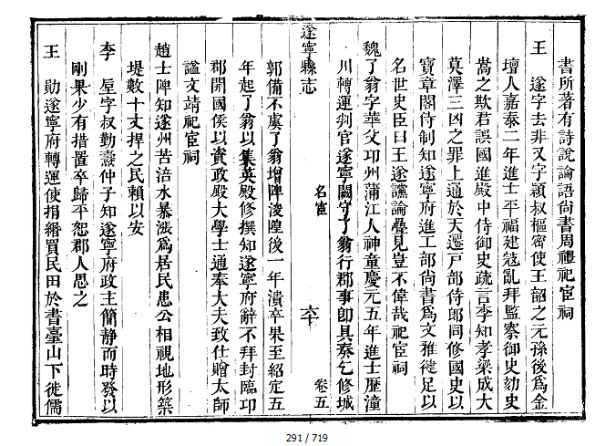 書所著有詩說論語尚書周禮祀宦祠
王　遂字去非又字穎叔樞密使王韶之元孫後為金
壇人嘉泰二年進士平福建寇亂拜監察御史劾史
嵩之欺君誤國進殿中侍御史疏言李知孝梁成大
莫澤三凶之罪上通於天遷戸部侍郎同修國史以
寶章閣待制知遂寧府進工部尚書為文雅徤足以
名世史臣曰王遂讜論疊見豈不偉哉祀宦祠
魏了翁字華父邛州蒲江人神童慶元五年進士歷潼
川轉運判官遂寧闕守了翁行郡事即具奏乞修城
遂寧縣志　名宦　六十　卷五
郭備不虞了翁增陴浚隍後一年潰卒果至紹定五
年起了翁以集英殿修撰知遂寧府辭不拜封臨邛
郡開國侯以資政殿大學士通奉大夫致仕贈太師
謚文靖祀宦祠
趙士陴知遂州苦涪水暴漲為居民患公相視地形築
堤數十丈捍之民賴以安
李　垕字叔勤燾仲子知遂寧府政主簡靜而時發以
剛果少有措置卒歸平恕郡人思之
王　勛遂寧府轉運使捐緡買民田於書臺山下徙儒
291 / 719